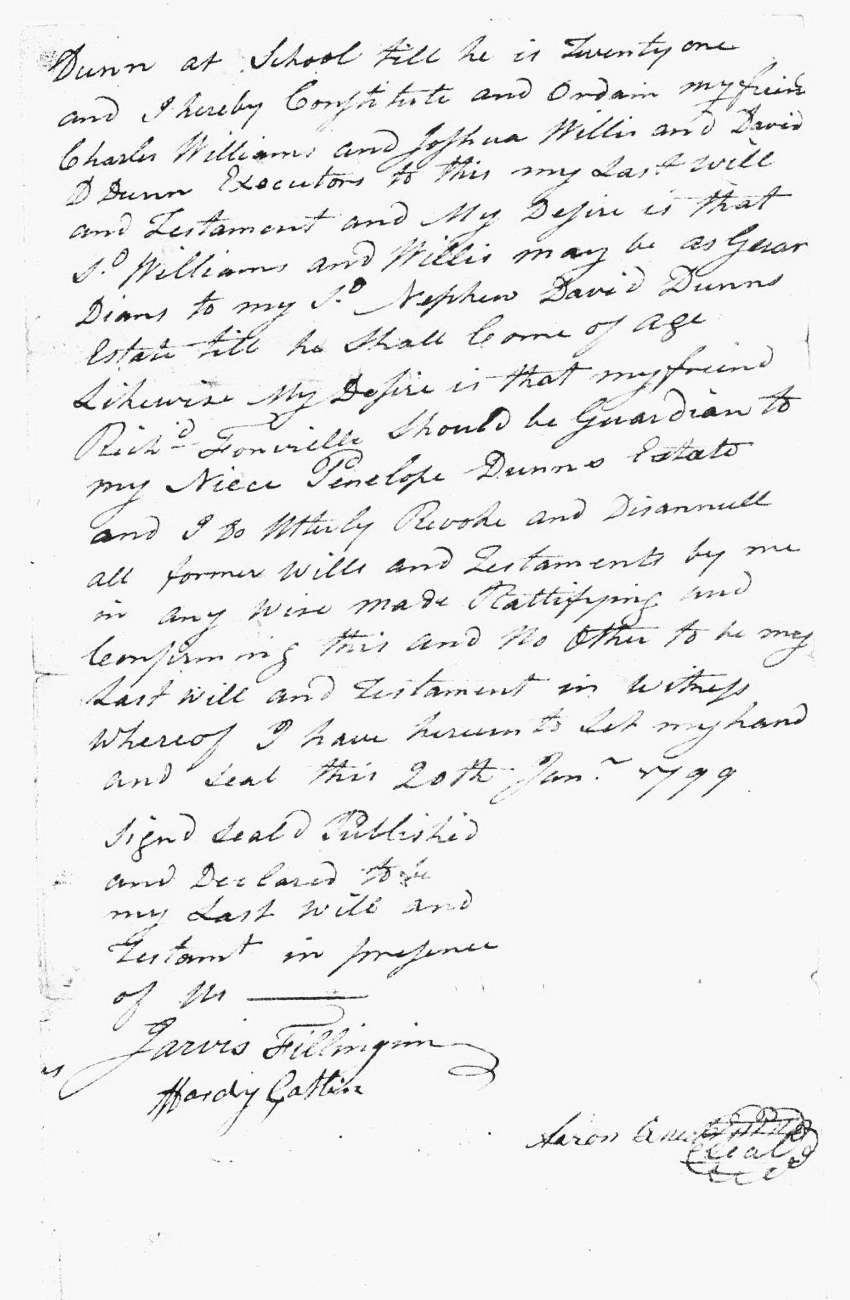 Dunn at School till he is Twenty one
and I hereby Constitute and Ordain my friend
Charles Williams and Joshua Willis and David
D Dunn Executors to this my Last Will
and Testament and My Desire is that
Sd Williams and Willis may be as Guar
Dians to my Sd Nephew David Dunns
Estate till he Shall Come of age
Likewise My Desire is that my friend
Richd Fonvielle Should be Guardian to
my Niece Penelope Dunns Estate
and I Do Utterly Revoke and Disannull
all former Wills and Testaments by me
in any Wise made Rattifying and
Confirming this and No Other to be my
Last Will and Testament in Witness
Whereof I have hereunto Set my hand
and Seal this 20th Janr 1799
Signd Seald Published
and Declared to be
my Last Will and
Testamt in presence
of us
Jarvis Fillingim
Hardy Gatlin
Aaron
Seal